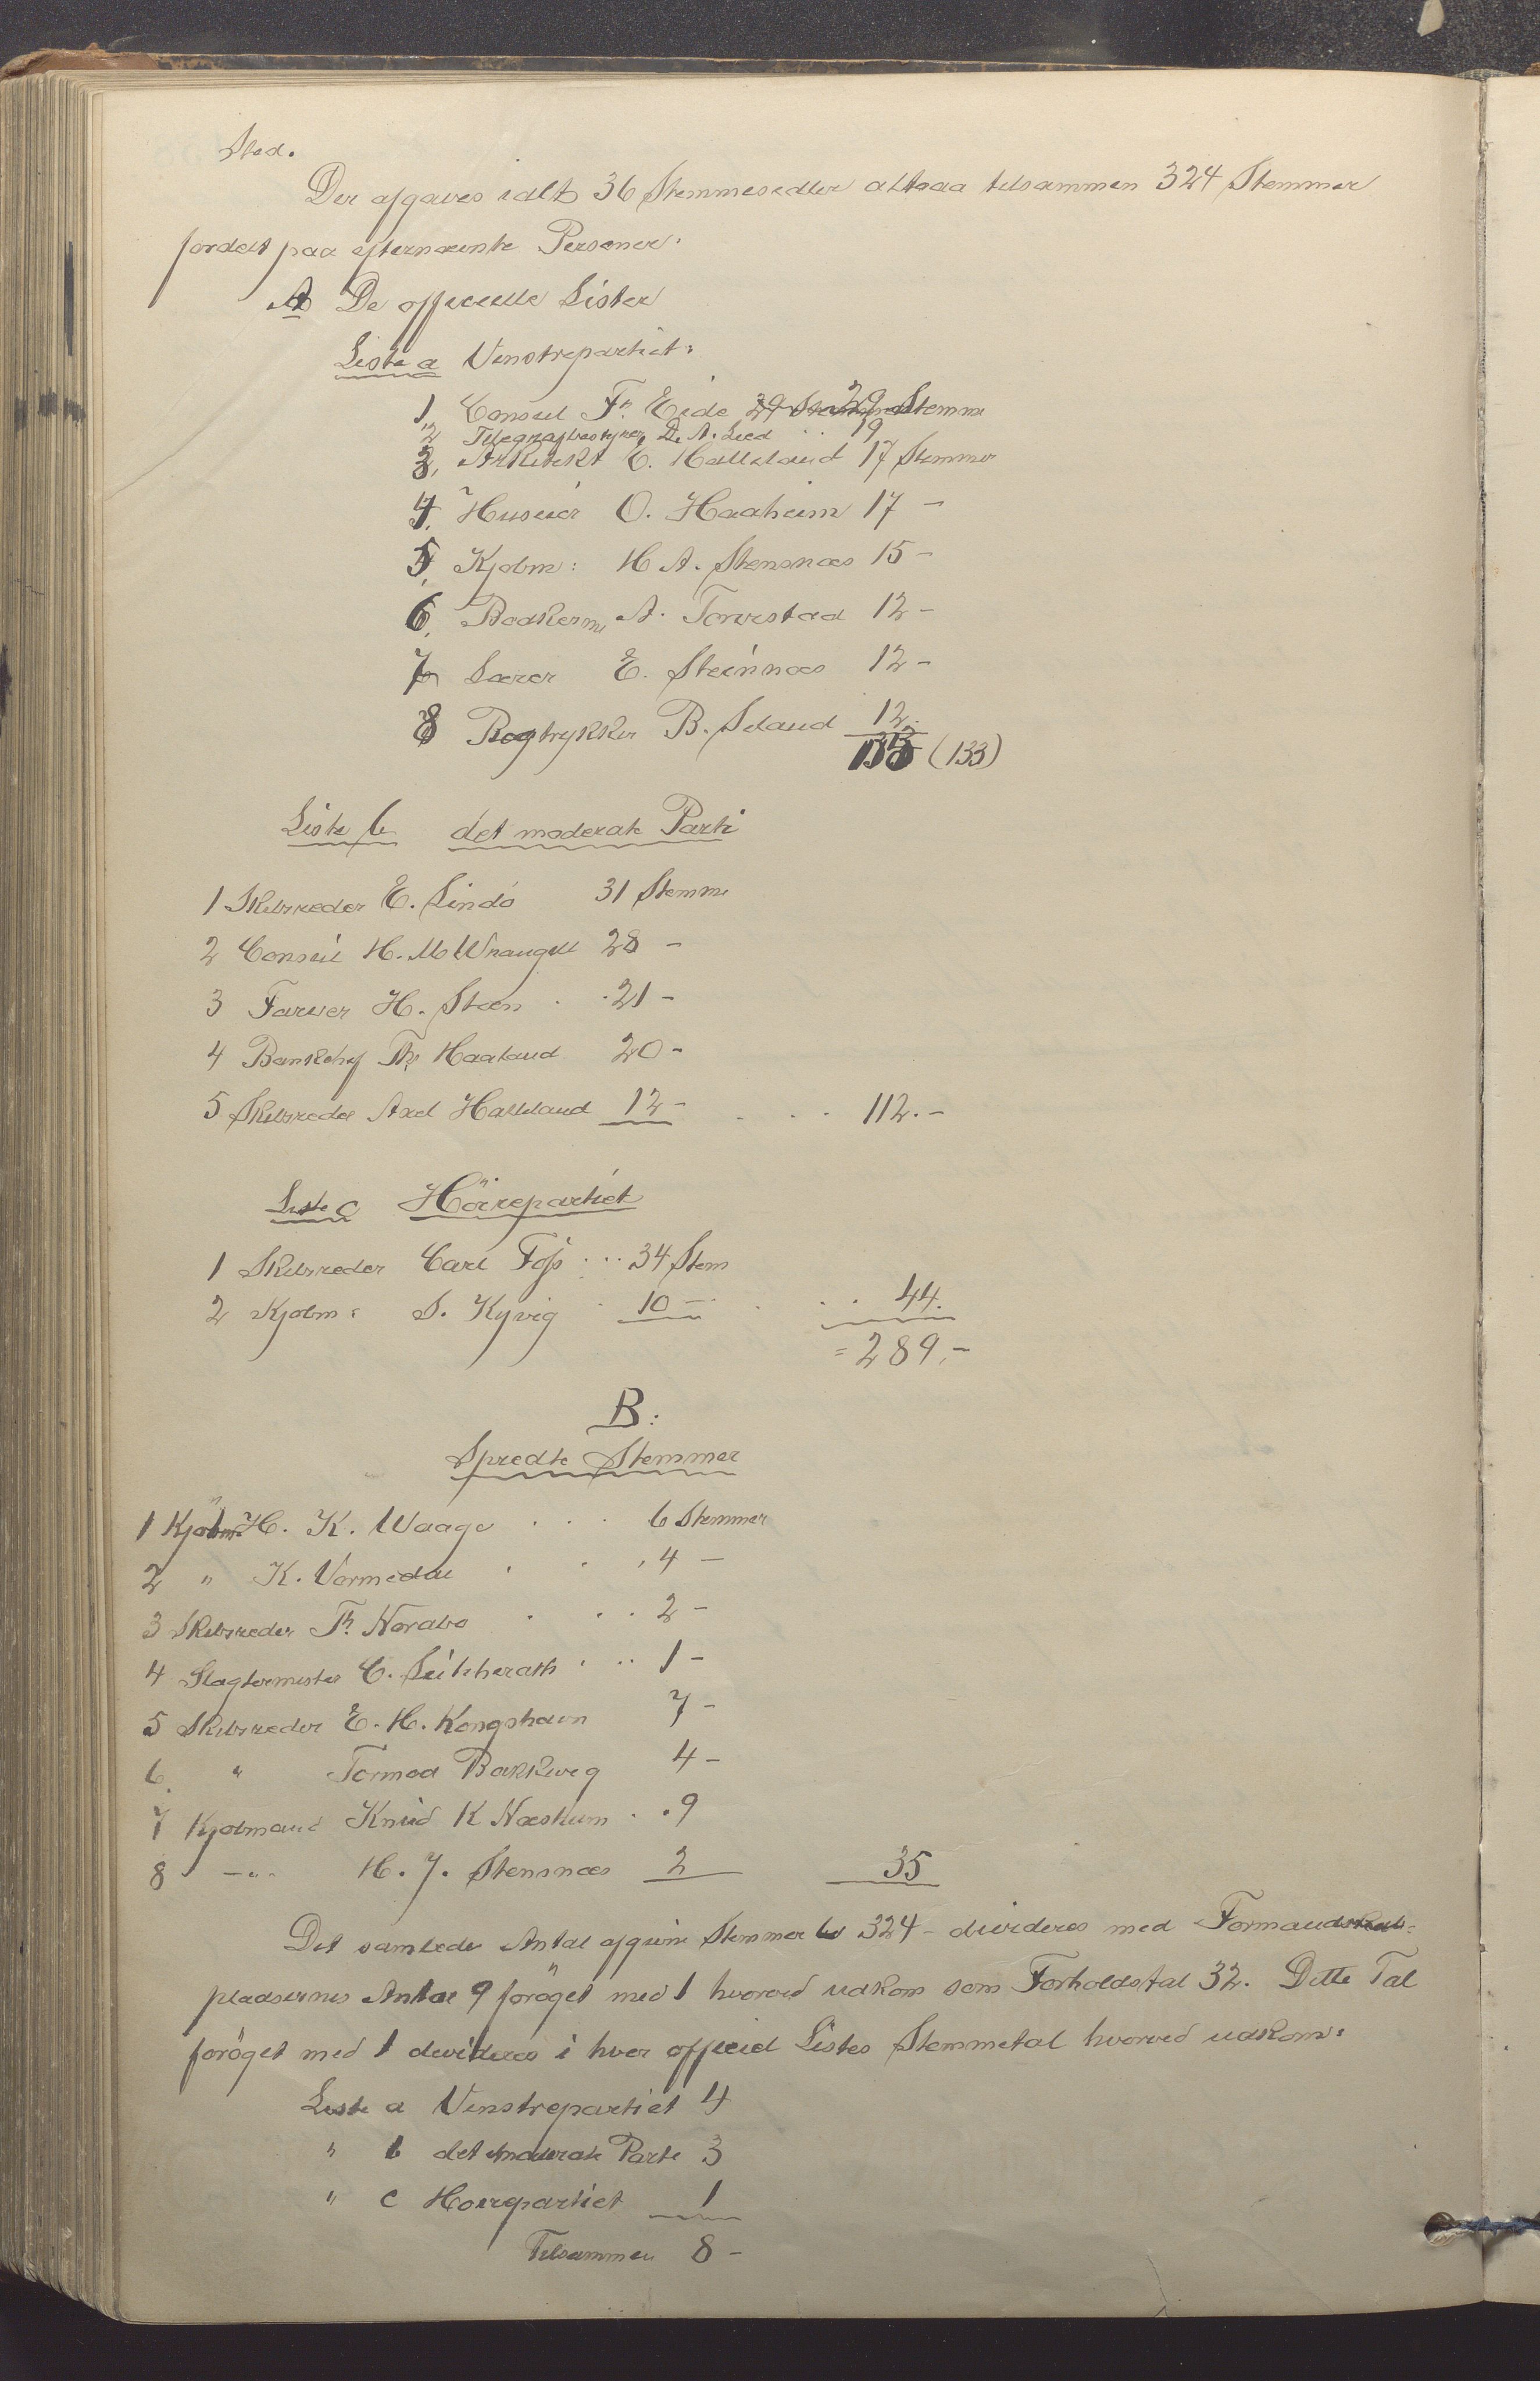 Sted.
Der afgaves ialt 36 Stemmesedler altsaa tilsammen 324 Stemmer
fordelt paa efternævnte Personer:
A De officielle Lister
Liste a Venstrepartiet:
1 Consul Fr. Eide 29 Stemme
2 Telegrafbestyrer D. A. Lied 19
3, Arkitekt E. Halleland 17 Stemmer
4, Huseier O. Haaheim 17 –
5, Kjøbm: H A. Stensnæs 15 –
6, Bødkerm, A. Torvestad 12 –
7 Lærer E. Steinnæs 12 –
8 Bogtrykker B. Seland 12.
133 (133)
Liste b det moderate Parti
1 Skibsreder E. Lindø 31 Stemme
2 Consul H. M Wrangell 28 –
3 Farver H. Steen . . 21 –
4 Bankchef Th. Haaland 20 –
5 Skibsreder Axel Halleland 12 – . . . 112. –
Liste c Höirepartiet
1 Skibsreder Carl Foss ... 34 Stem
2 Kjøbm: S. Kyvig . 10 – . . . 44.
= 289, –
B:
Spredte Stemmer
1 Kjøbm: H. K. Waage . . . 6 Stemmer
2 " K. Vormedal . . , 4 –
3 Skibsreder Th. Nordbø . . . 2 –
4 Slagtermester C. Leitherath . .. 1 –
5 Skibsreder E. H. Kongshavn 7 –
6. " Tormod Bakkevig 4 –
7 Kjøbmand Knud K Næshum . . 9
8 – " – H. J. Stensnæs 2 35
Det samlede Antal afgivne Stemmer 324 – divideres med Formandskabs-
pladsernes Antal 9 foröget med 1 hvorved udkom som Forholdstal 32. Dette Tal
foröget med 1 divideres i hver officiel Listes Stemmetal hvorved udkom:
Liste a Venstrepartiet 4
" b det moderate Parti 3
" c Hoirepartiet 1
Tilsammen 8 –